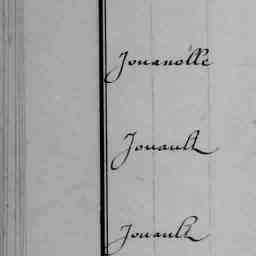 Jouanolle
Jouault
Jouault